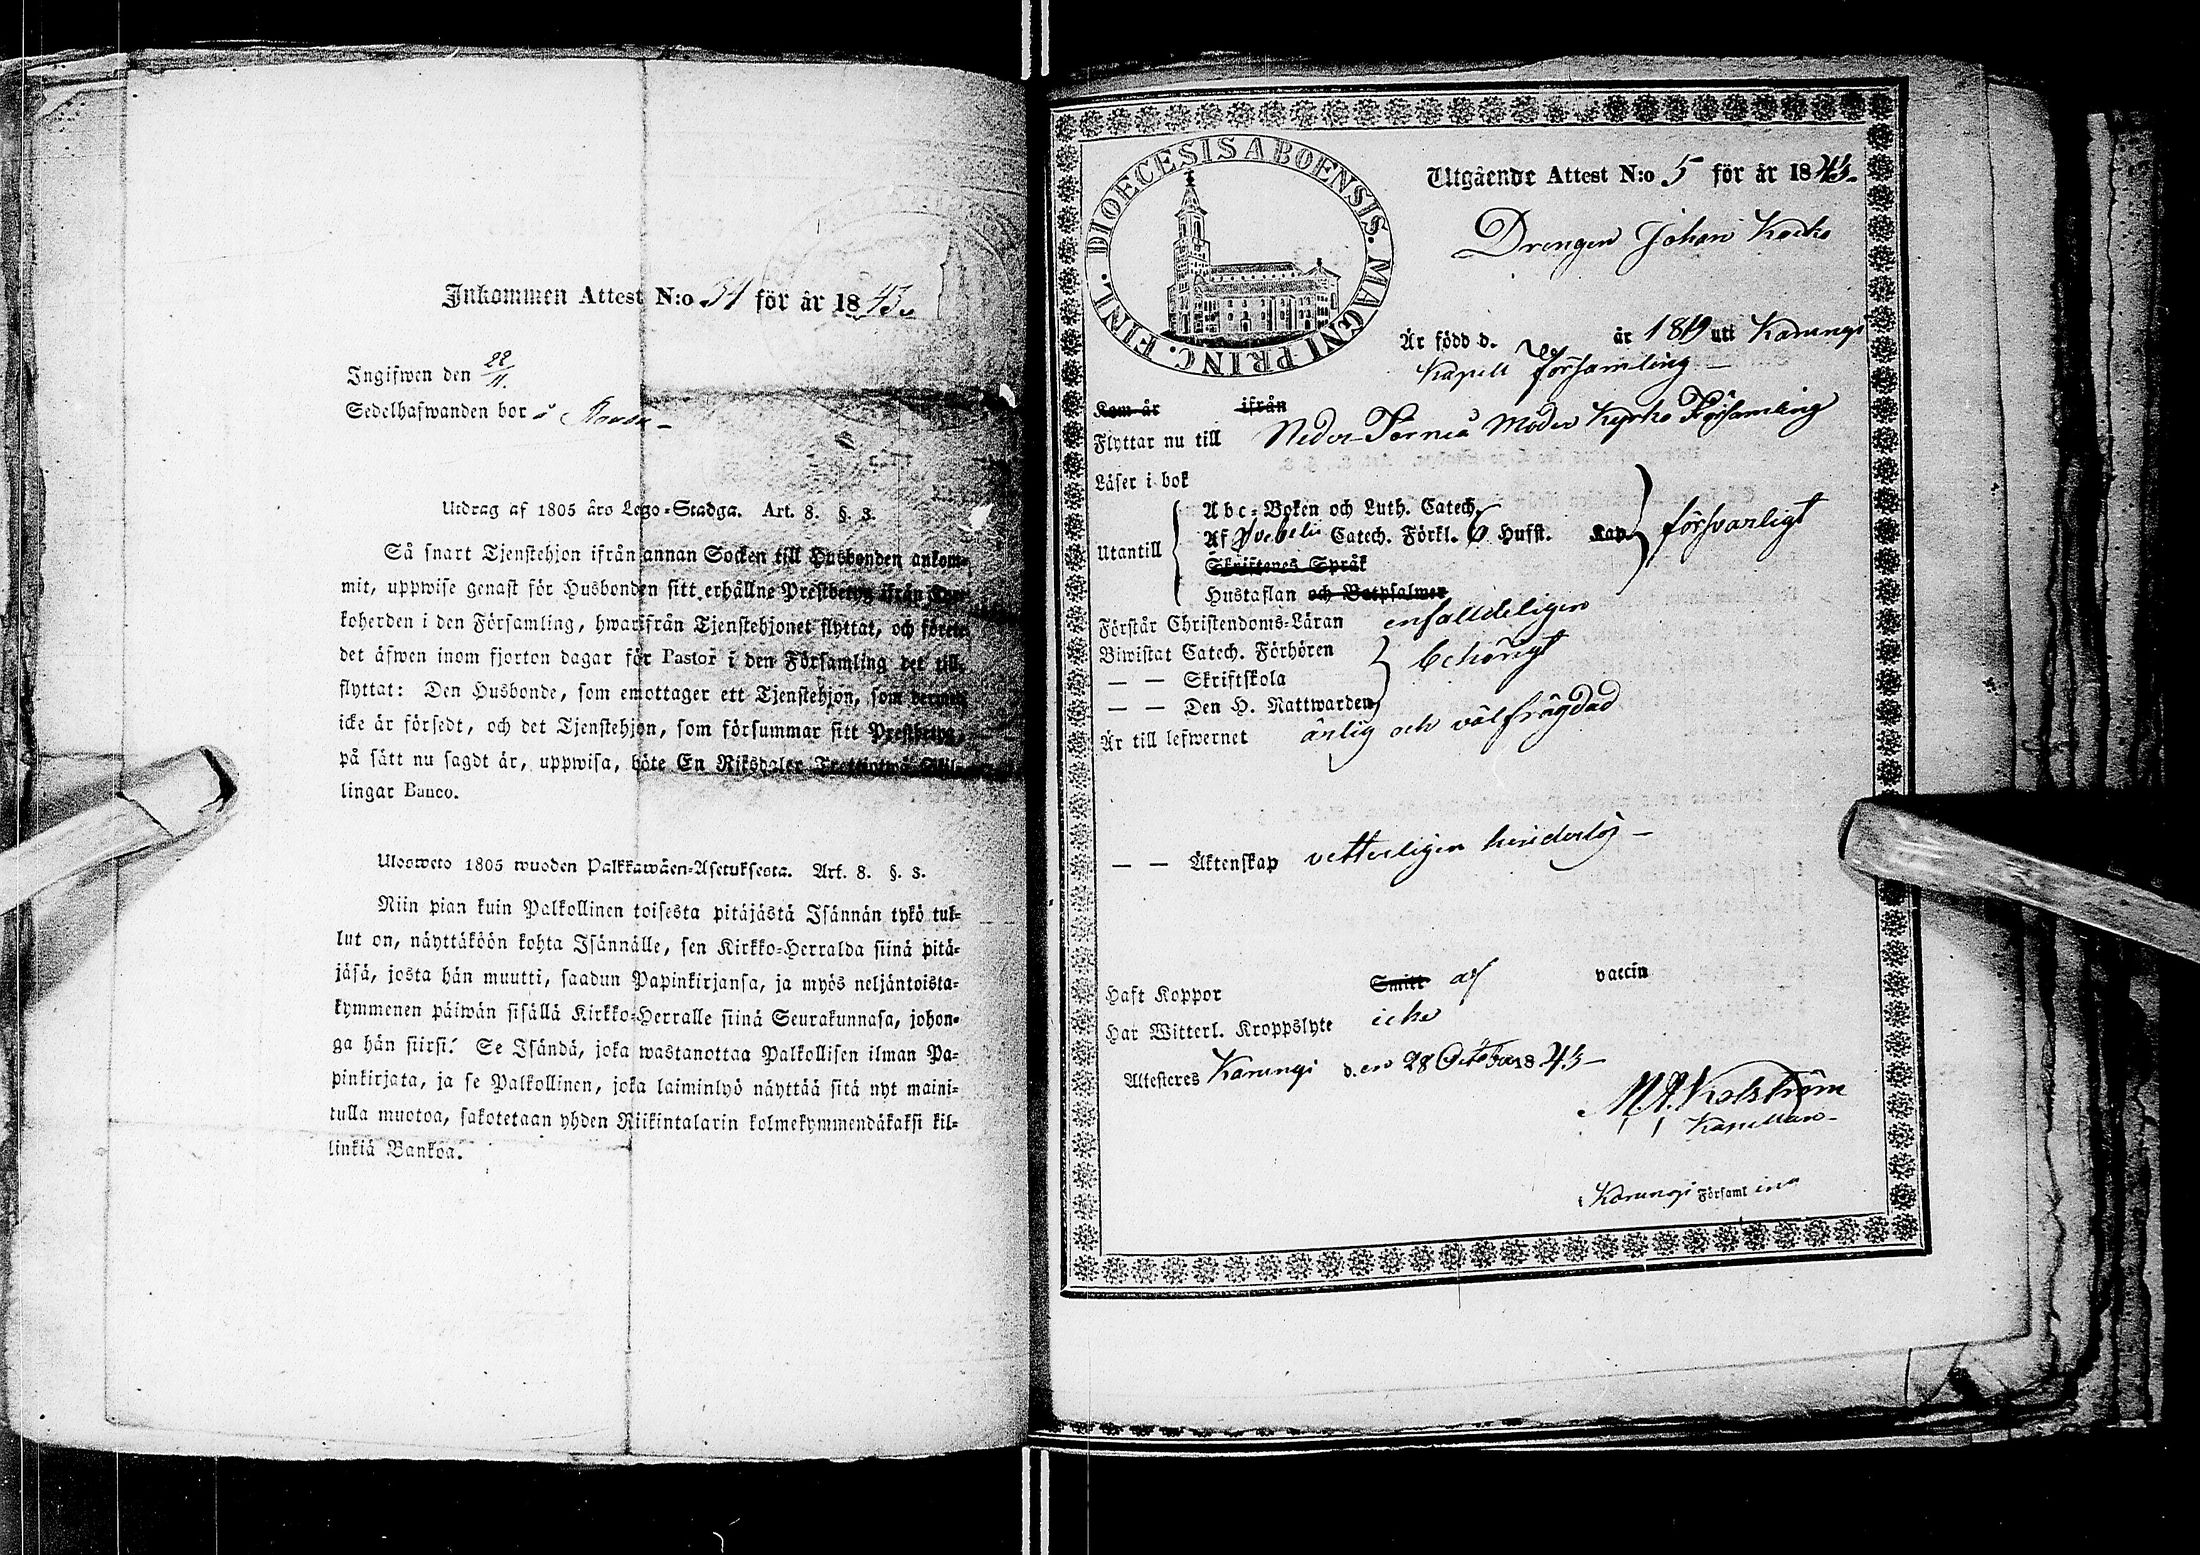 Inkommen Attest N:o 31 för år 1843.
Ingifwen den 22/11.
Sedelhafwanden bor å
Utdrag af 1805 års Lego-Stadga. Art. 8. §. 3.
Så snart Tjenstehjon ifrån annan Socken till Husbonden ankom-
mit, uppwise genast för Husbonden sitt erhållne Prestbetyg ifrån Kyr-
koherden i den Församling, hwarifrån Tjenstehjonet flyttat, och förete
det äfwen inom fjorton dagar för Pastor i den Församling det till-
flyttat: Den Husbonde, som emottager ett Tjenstehjon, som dermed
icke är försedt, och det Tjenstehjon, som försummar sitt Prestbetyg,
på sätt nu sagdt är, uppwisa, böte En Riksdaler Trettiotwå Skil-
lingar Banco.
Ulosweto 1805 wuoden Palkkawäen-Asetuksesta. Art. 8. §. 3.
Niin pian kuin Palkollinen toisesta pitäjästä Isännän tykö tul-
lut on, näyttäköön kohta Isännälle, sen Kirkko-Herralda siinä pitä-
jäsä, josta hän muutti, saadun Papinkirjansa, ja myös neljäntoista-
kymmenen päiwän sisällä Kirkko-Herralle siinä Seurakunnasa, johon-
ga hän siirsi. Se Isändä, joka wastanottaa Palkollisen ilman Pa-
pinkirjata, ja se Palkollinen, joka laiminlyö näyttää sitä nyt maini-
tulla muotoa, sakotetaan yhden Riikintalarin kolmekymmendäkaksi kil-
linkiä Bankoa.
DIOECESIS ABOENSIS. MAGNI PRINC. FINL.
Utgående Attest N:o 5 för år 1843.
Drengen Johan
Är född d. år 1819 uti Karungi
Kapell Församling
Kom år ifrån
Flyttar nu till Neder-Torneå Moder Kyrko Församling
Läser i bok
Utantill
Abc-Boken och Luth. Catech.
Af Svebelii Catech. Förkl. 6 Hufst. Kap. försvarligt
Skriftenes Språk
Hustaflan och Botpsalmer
Förstår Christendoms-Läran enfalldeligen
Biwistat Catech. Förhören behörigt
— — Skriftskola
— — Den H. Nattwarden
Är till lefwernet ärlig och välfrägdad
— — Äktenskap vetterligen hinderlös
Haft Koppor Smitt af vaccin
Har Witterl. Kroppslyte icke
Attesteres Karungi den 28 October 1843
Kapellan
Karungi Församling